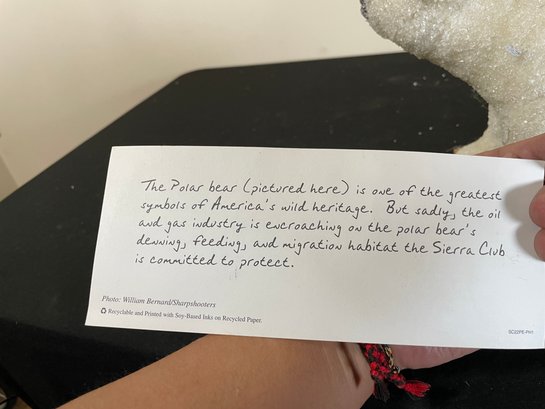 The Polar bear (pictured here) is one of the greatest
symbols of America's wild heritage. But sadly, the oil
and gas industry is encroaching on the polar bear's
denning, feeding, and migration habitat the Sierra Club
is committed to protect.
Photo: William Bernard/Sharpshooters
♻ Recyclable and Printed with Soy-Based Inks on Recycled Paper.
SC22PE-PN1